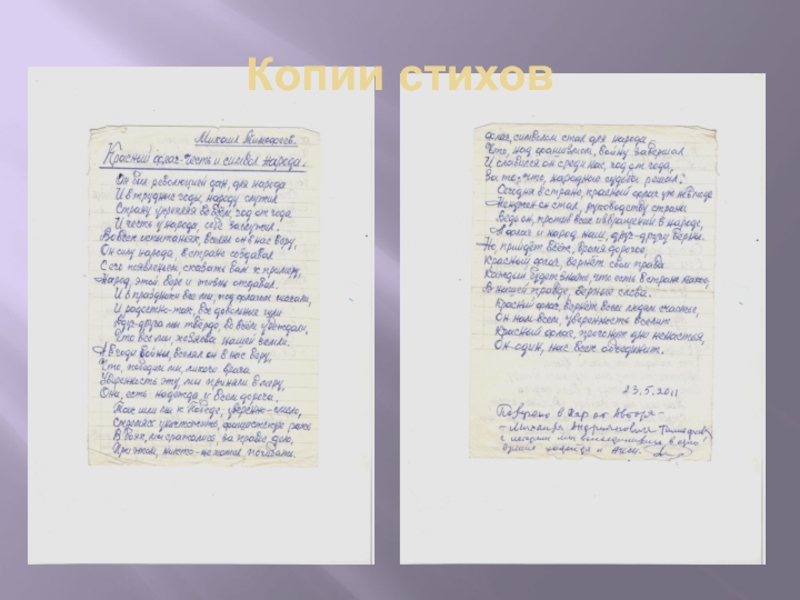 Копии стихов
Михаил Тимофеев.
Красный флаг-честь и символ народа.
Он был революцией дан, для народа
И в трудные годы, народу служил
Страну укреплял во всём, год от года
И честь у народа, себе заслужил.
Во всех испытаньях, вселял он в нас веру,
Он силу народа, в стране создавал
С его появленьем, сказать вам к примеру,
Народ, этой вере и жизнь отдавал.
И в праздники все мы, под флагом шагали,
И радостно-так, все довольные шли
Друг-друга мы твёрдо, во всём убеждали,
Что все мы, хозяева нашей земли.
А в годы войны, вселял он в нас веру,
Что, победим мы, лихого врага
Уверенность эту мы приняли в меру,
Она, есть надежда и всем дорога.
Так шли мы к победе, уверенно-смело,
Стремясь уничтожить, фашистскую
В боях, мы сражались, за правое дело,
При этом, никто-не хотел погибать.
Флаг, символом стал для народа
Что, над фашизмом, войну завершил
И славился он среди нас, год от года,
За то-что, народные судьбы решал.
Сегодня в стране, красный флаг уж не в моде
Ненужен он стал, руководству страны
Ведь он, против всех извращений в народе,
А флаг и народ наш, друг-другу верны.
Но, придёт ещё, время дорогое
Красный флаг, вернёт свои права
Каждый будет знать, что есть в стране такое,
В нашей правде, верные слова.
Красный флаг, вернёт всем людям счастье,
Он нам всем, уверенность вселит
Красный флаг, прогонит дни ненастья,
Он-один, нас всех объединит.
23.5.2011
Получено в дар от Автора-
-Михаила Андрияновича Тимофеева,
с которым мы
время и жили.